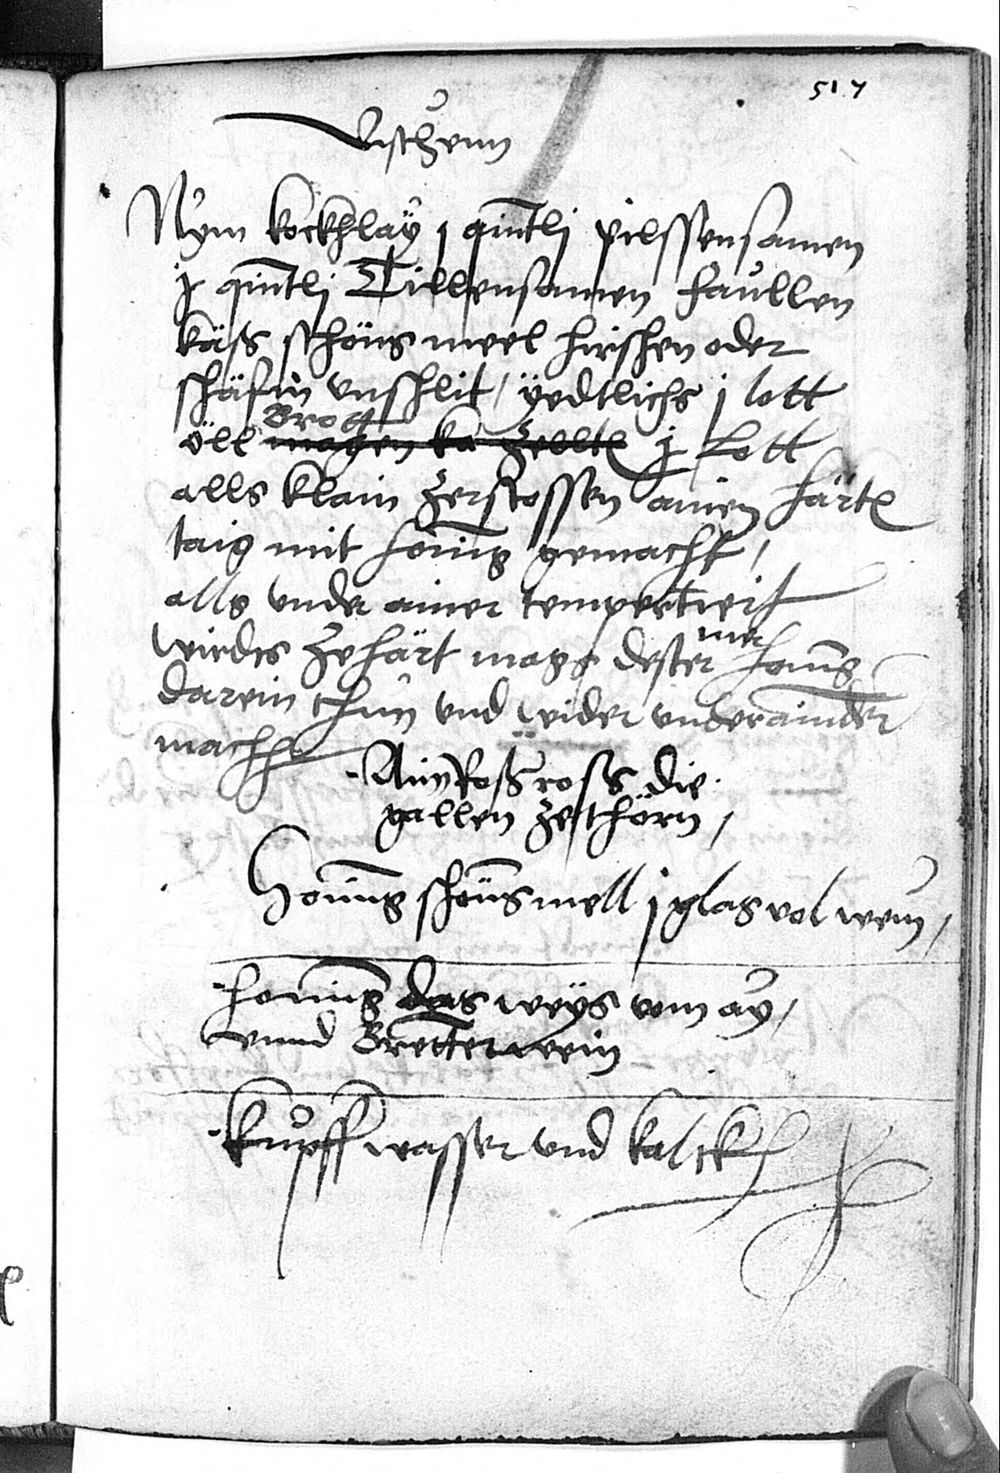 517
Vischenn
Nym kockhlay j quintlj pilssensamen
j quintlj Dillensamen faullen
käß schöns meel hirschen oder
schäfin vnschlit / yedtlichs j lott
Brott
öll magen ka zelltl j Lott
alls klain zerstossen ainen härtl
taig mit honing gemacht /
alls vnder ainer temperiert
mer
wirdts ze härt mags dester honing
darein thun vnd wider vnderainnder
machh
Ainn Roß roß die
gallen zesthörn /
Honing schöns mell j glas vol wein /
honing das weÿs vom aÿ /
vnnd Brentterwein
Kupffwasser vnd kalckh